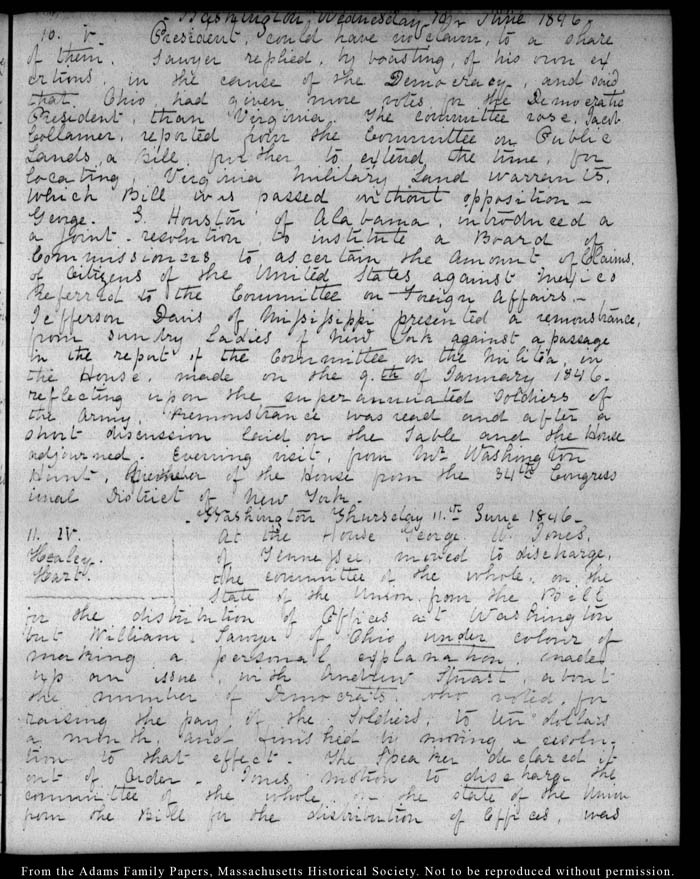 Washington, Wednesday 10th June 1846.
10. V. President, could have no claim, to a share
of them. Sawyer replied, by boasting, of his own ex
ertions, in the cause of the Democracy, and said
that Ohio had given more votes for the Democratic
President, than Virginia. The committee rose. Jacob
Collamer, reported from the Committee on Public
Lands, a Bill, further to extend, the time, for
locating, Virginia military Land warrants,
which Bill was passed without opposition -
George. S. Houston of Alabama, introduced a
a joint-resolution to institute a Board of
Commissioners to ascertain the amount of Claims,
of Citizens of the United States against Mexico
Referred to the Committee on Foreign Affairs. -
Jefferson Davis of Mississippi presented a remonstrance,
from sundry Ladies of New York against a passage
in the report of the Committee on the Militia, in
the House, made on the 9.th of January 1846-
reflecting upon the superannuated Soldiers of
the Army. Remonstrance was read and after a
short discussion laid on the Table and the House
adjourned. Evening visit, from Mr Washington
Hunt, Member of the House from the 34th Congress
ional District of New York.
Washington Thursday 11.th June 1846-
11. IV. At the House George W. Jones,
Healey. of Tennessee, moved to discharge,
Hart. the committee of the whole, on the
State of the Union, from the Bill
for the distribution of Offices at Washington
but William Sawyer of Ohio, under colour of
making a personal explanation, made
up an issue, with Andrew Stuart, about
the number of Democrats, who voted, for
raising the pay, of the Soldiers, to ten dollars
a month, and finished by moving a resolu-
tion to that effect. The Speaker declared it
out of Order - Jones motion to discharge the
committee of the whole on the state of the Union
from the Bill for the distribution of Offices, was
From the Adams Family Papers, Massachusetts Historical Society. Not to be reproduced without permission.